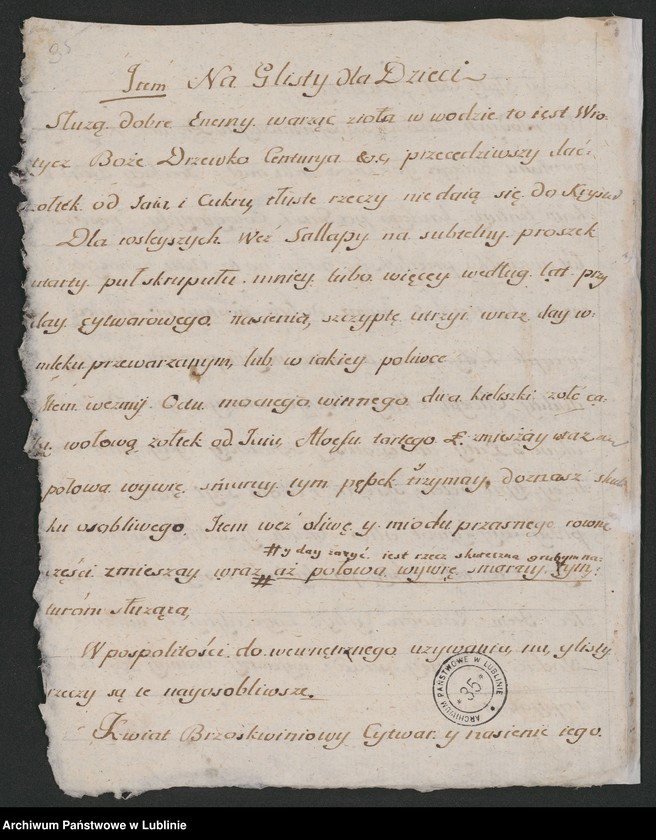 95
Item Na Glisty dla Dzieci
Służą dobre Enemy warząc zioła w wodzie to iest Wro-
tycz Boże Drzewko Centurya &c, przecedziwszy dać
żołtek od Jaia, i Cukru, tłuste rzeczy nie daią się do
Dla rosleyszych. Weź Sallapy na subtelny proszek
utarty puł skrupułu mniey lubo więcey według lat przy
day cytwarowego nasienia, szczyptę utrzyi wraz day w
mleku przewarzanym, lub w iakiey polewce
Item wezmij Octu mocnego winnego dwa kieliszki żołć ca-
łą wołową żołtek od Jaia, Aloesu tartego zmieszay wraz aż
połowa wywrę smaruy tym pępek y trzymay, doznasz skut-
ku osobliwego Item weź oliwę y miodu przasnego rowne
# y day zażyć iest rzecz skuteczna grubym na-
części zmieszay wraz # aż połowa wywrę smaruy tym:
turom służąca,
W pospolitości do wewnętrznego używania, na glisty
rzeczy są te nayosobliwsze.
Kwiat Brzoskwiniowy Cytwar y nasienie iego.
ARCHIWUM PAŃSTWOWE W LUBLINIE
* 35 *
Archiwum Państwowe w Lublinie